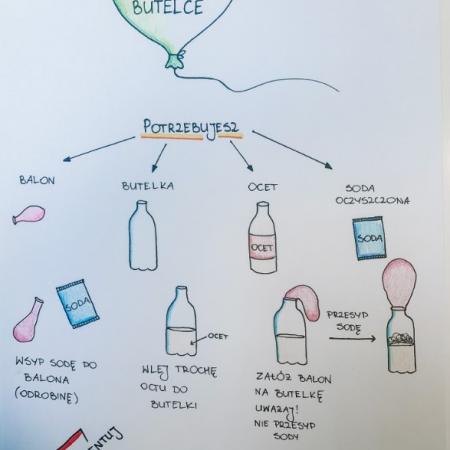 BUTELCE
POTRZEBUJESZ
BALON
BUTELKA
OCET
SODA
OCZYSZCZONA
OCET
SODA
SODA
OCET
PRZESYP
SODĘ
WSYP SODĘ DO
BALONA
(ODROBINĘ)
WLEJ TROCHĘ
OCTU DO
BUTELKI
ZAŁÓŻ BALON
NA BUTELKĘ
UWAŻAJ!
NIE PRZESYP
SODY